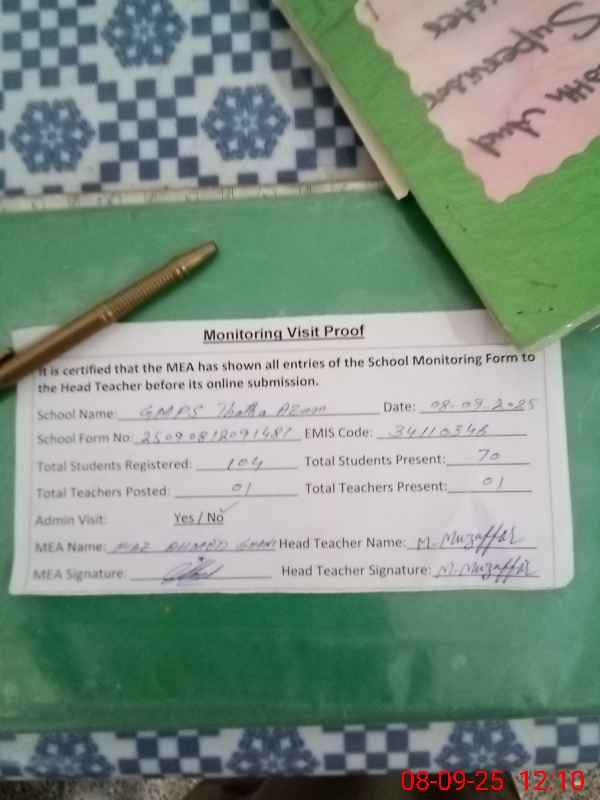 Health And
Supervisor
Monitoring Visit Proof
It is certified that the MEA has shown all entries of the School Monitoring Form to
the Head Teacher before its online submission.
School Name: GMPS Thatha Azam Date: 08-09-2025
School Form No: 25090812091481 EMIS Code: 34110346
Total Students Registered: 104 Total Students Present: 70
Total Teachers Posted: 01 Total Teachers Present: 01
Admin Visit: Yes / No
MEA Name: AHMED GHANI Head Teacher Name: M. Muzaffar
MEA Signature: Head Teacher Signature: M. Muzaffar
08-09-25 12:10